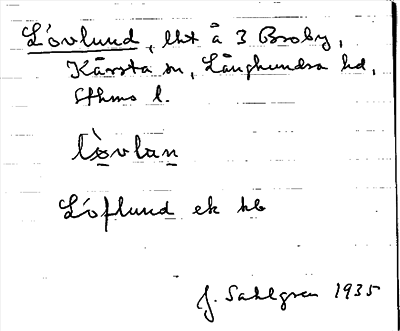 Lövlund, lht å 3 Broby,
Kårsta sn, Långhundra hd,
Sthms l.
lövlan
Löflund ek kb
J. Sahlgren 1935